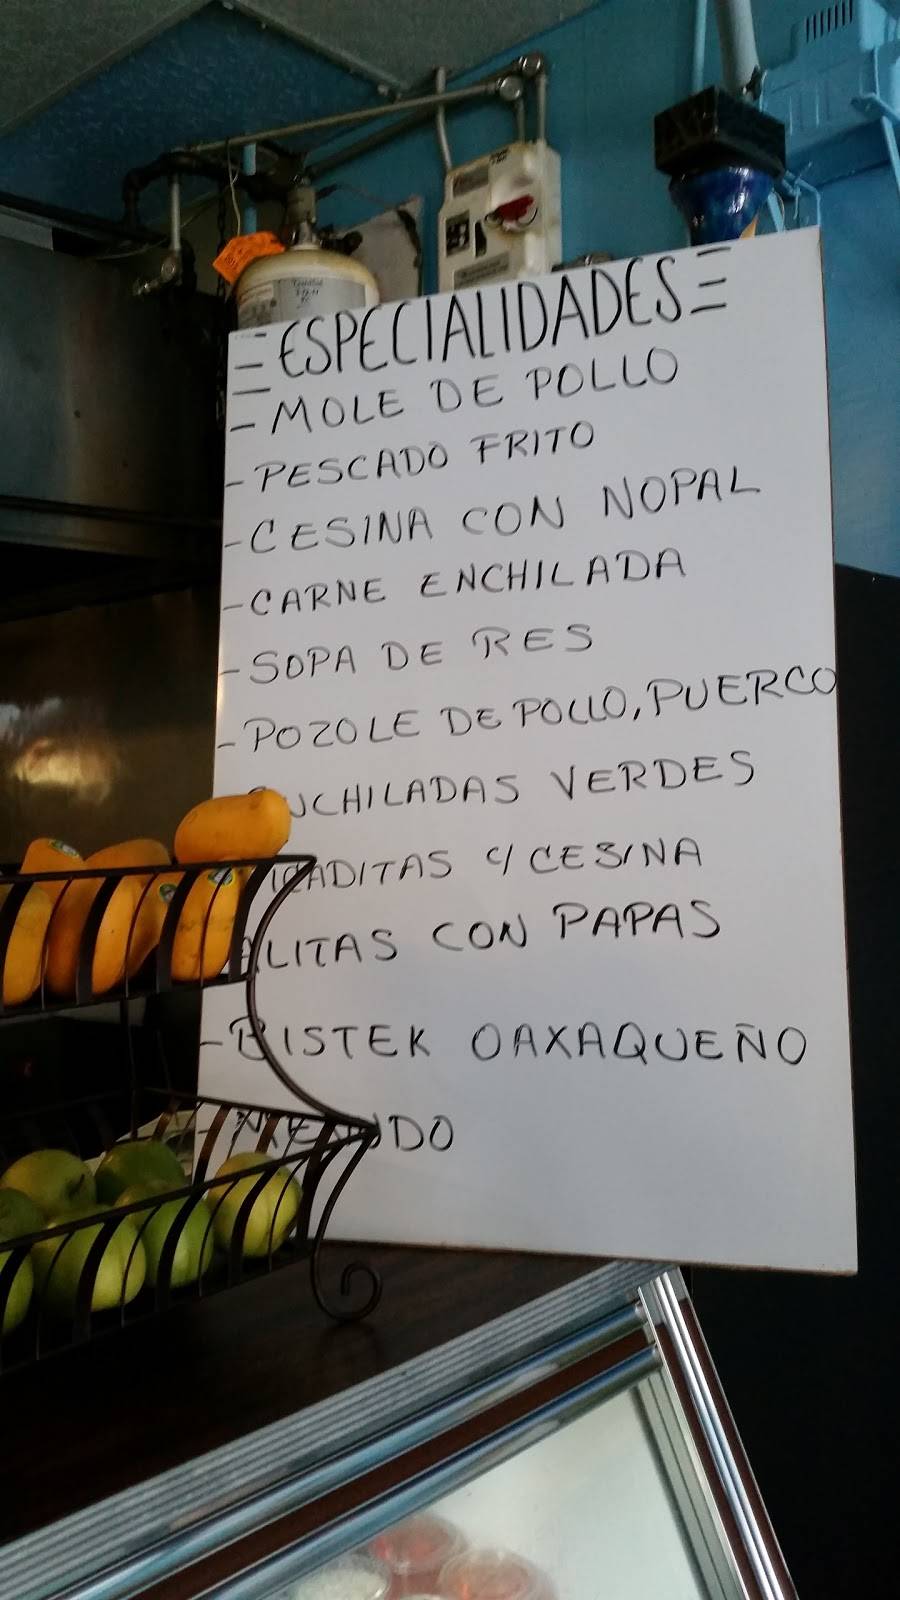 ESPECIALIDADES
- MOLE DE POLLO
- PESCADO FRITO
- CESINA CON NOPAL
- CARNE ENCHILADA
- SOPA DE RES
- POZOLE DE POLLO, PUERCO
ENCHILADAS VERDES
PICADITAS C/ CESINA
ALITAS CON PAPAS
- BISTEK OAXAQUEÑO
- MENUDO